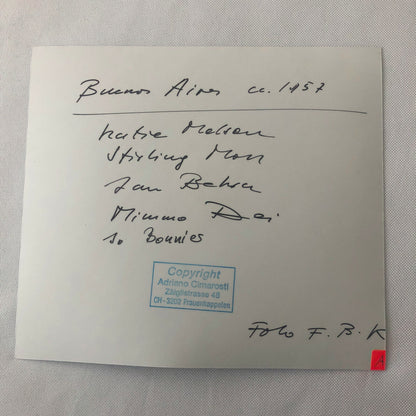 Buenos Aires ca. 1957
Katie Molson
Stirling Moss
Jan Behra
Mimmo Dei
Jo Bonnier
Copyright
Adriano Cimarosti
CH - 3202 Frauenkappelen
Foto F. B. K
A